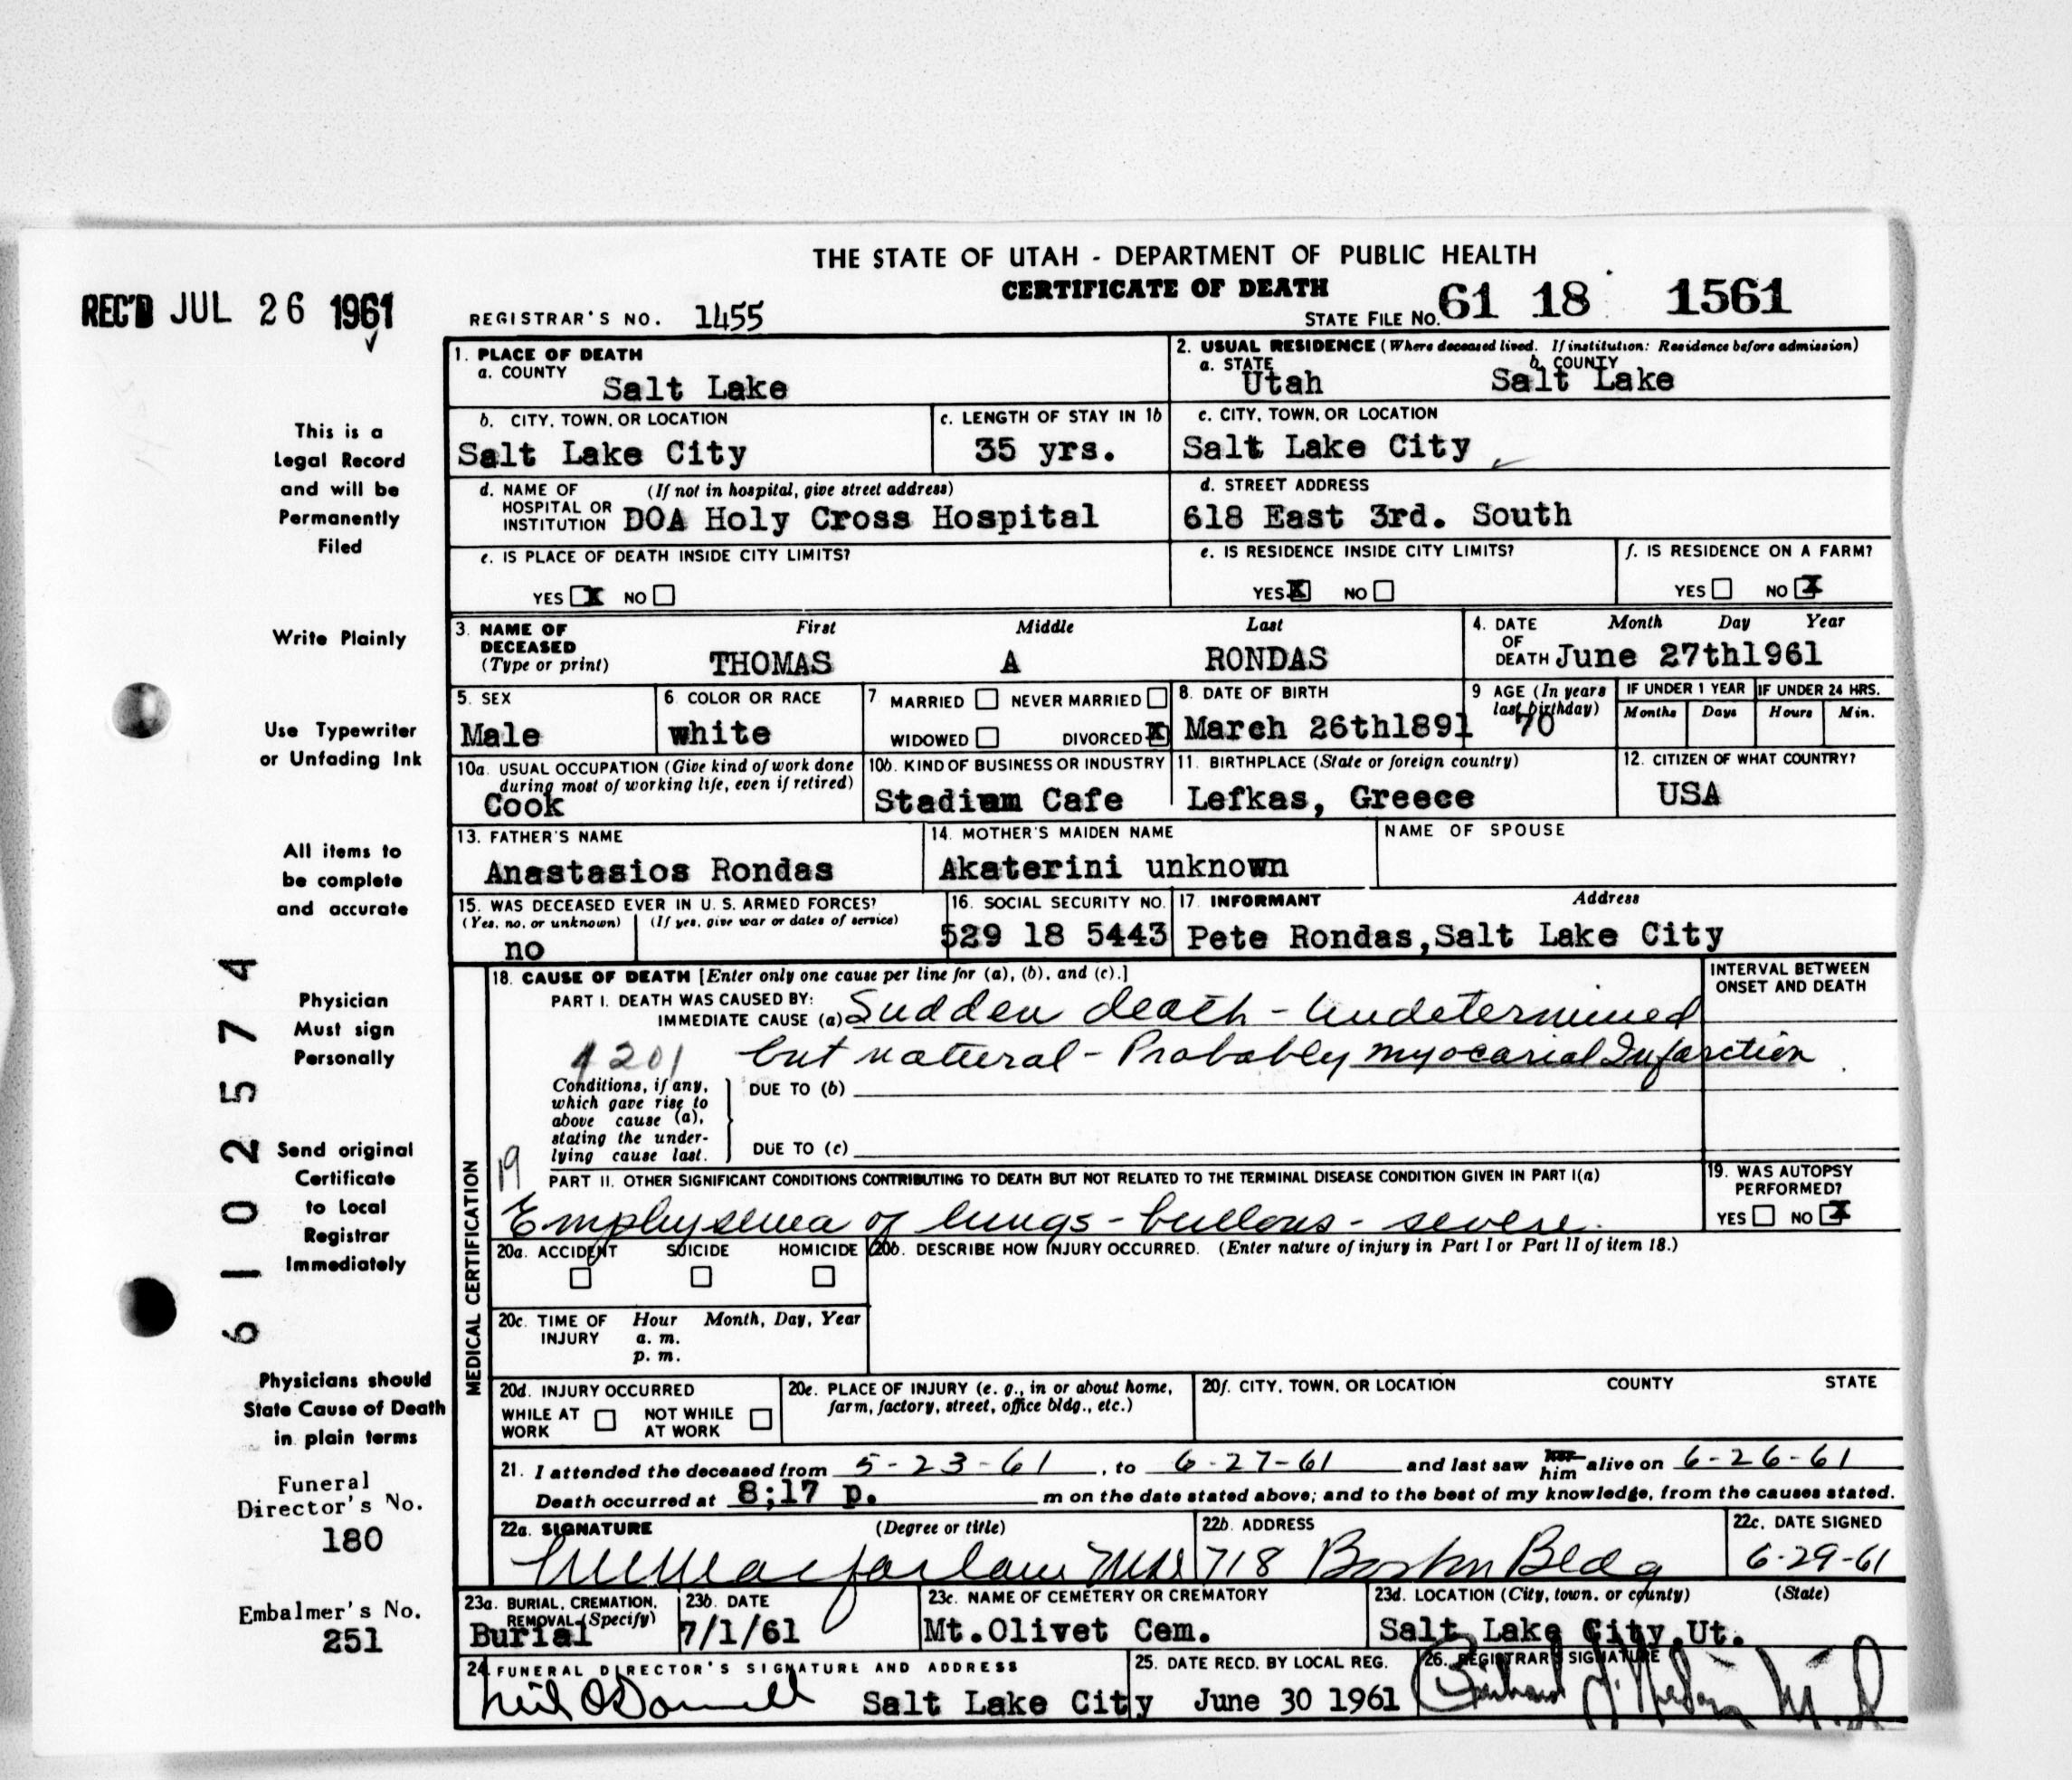 THE STATE OF UTAH - DEPARTMENT OF PUBLIC HEALTH
CERTIFICATE OF DEATH
REC'D JUL 26 1961
REGISTRAR'S NO. 1455
STATE FILE NO. 61 18 1561
1. PLACE OF DEATH
a. COUNTY
Salt Lake
2. USUAL RESIDENCE (Where deceased lived. If institution: Residence before admission)
a. STATE b. COUNTY
Utah Salt Lake
b. CITY, TOWN, OR LOCATION
Salt Lake City
c. LENGTH OF STAY IN 1b
35 yrs.
c. CITY, TOWN, OR LOCATION
Salt Lake City
d. NAME OF (If not in hospital, give street address)
HOSPITAL OR
INSTITUTION DOA Holy Cross Hospital
d. STREET ADDRESS
618 East 3rd. South
e. IS PLACE OF DEATH INSIDE CITY LIMITS?
YES X NO
e. IS RESIDENCE INSIDE CITY LIMITS?
YES X NO
f. IS RESIDENCE ON A FARM?
YES NO X
3. NAME OF First Middle Last
DECEASED
(Type or print) THOMAS A RONDAS
4. DATE Month Day Year
OF
DEATH June 27th1961
5. SEX
Male
6. COLOR OR RACE
white
7 MARRIED NEVER MARRIED
WIDOWED DIVORCED X
8. DATE OF BIRTH
March 26th1891
9 AGE (In years
last birthday)
70
IF UNDER 1 YEAR IF UNDER 24 HRS.
Months Days Hours Min.
10a. USUAL OCCUPATION (Give kind of work done
during most of working life, even if retired)
Cook
10b. KIND OF BUSINESS OR INDUSTRY
Stadium Cafe
11. BIRTHPLACE (State or foreign country)
Lefkas, Greece
12. CITIZEN OF WHAT COUNTRY?
USA
13. FATHER'S NAME
Anastasios Rondas
14. MOTHER'S MAIDEN NAME
Akaterini unknown
NAME OF SPOUSE
15. WAS DECEASED EVER IN U. S. ARMED FORCES?
(Yes, no, or unknown) (If yes, give war or dates of service)
no
16. SOCIAL SECURITY NO.
529 18 5443
17. INFORMANT Address
Pete Rondas,Salt Lake City
MEDICAL CERTIFICATION
18. CAUSE OF DEATH [Enter only one cause per line for (a), (b), and (c).]
INTERVAL BETWEEN
ONSET AND DEATH
PART I. DEATH WAS CAUSED BY:
IMMEDIATE CAUSE (a) Sudden death - Undetermined
4201 but natural - Probably myocarial Infarction
Conditions, if any,
which gave rise to
above cause (a),
stating the under-
lying cause last.
DUE TO (b)
DUE TO (c)
19
PART II. OTHER SIGNIFICANT CONDITIONS CONTRIBUTING TO DEATH BUT NOT RELATED TO THE TERMINAL DISEASE CONDITION GIVEN IN PART I(a)
Emphysema of lungs - bullous - severe.
19. WAS AUTOPSY
PERFORMED?
YES NO X
20a. ACCIDENT SUICIDE HOMICIDE
20b. DESCRIBE HOW INJURY OCCURRED. (Enter nature of injury in Part I or Part II of item 18.)
20c. TIME OF Hour Month, Day, Year
INJURY a. m.
p. m.
20d. INJURY OCCURRED
WHILE AT NOT WHILE
WORK AT WORK
20e. PLACE OF INJURY (e. g., in or about home,
farm, factory, street, office bldg., etc.)
20f. CITY, TOWN, OR LOCATION COUNTY STATE
21. I attended the deceased from 5-23-61, to 6-27-61 and last saw her him alive on 6-26-61
Death occurred at 8;17 p. m on the date stated above; and to the best of my knowledge, from the causes stated.
22a. SIGNATURE (Degree or title)
Macfarlane MD
22b. ADDRESS
718 Boston Bldg
22c. DATE SIGNED
6-29-61
23a. BURIAL, CREMATION,
REMOVAL (Specify)
Burial
23b. DATE
7/1/61
23c. NAME OF CEMETERY OR CREMATORY
Mt.Olivet Cem.
23d. LOCATION (City, town, or county) (State)
Salt Lake City,Ut.
24 FUNERAL DIRECTOR'S SIGNATURE AND ADDRESS
Neil O'Donnell Salt Lake City
25. DATE RECD. BY LOCAL REG.
June 30 1961
26. REGISTRAR'S SIGNATURE
This is a
Legal Record
and will be
Permanently
Filed
Write Plainly
Use Typewriter
or Unfading Ink
All items to
be complete
and accurate
Physician
Must sign
Personally
Send original
Certificate
to Local
Registrar
Immediately
Physicians should
State Cause of Death
in plain terms
Funeral
Director's No.
180
Embalmer's No.
251
61 02574